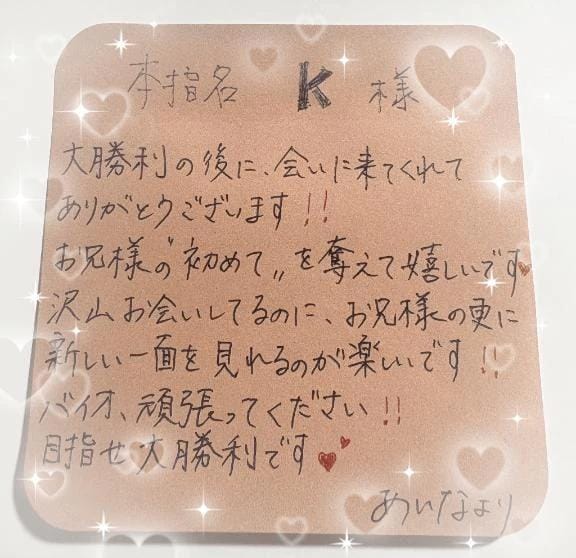 本指名 K 様
大勝利の後に、会いに来てくれて
ありがとうございます!!
お兄様の〝初めて〟を奪えて嬉しいです♥
沢山お会いしてるのに、お兄様の更に
新しい一面を見れるのが楽しいです!!
バイオ、頑張ってください!!
目指せ大勝利です♥♥
あいなより